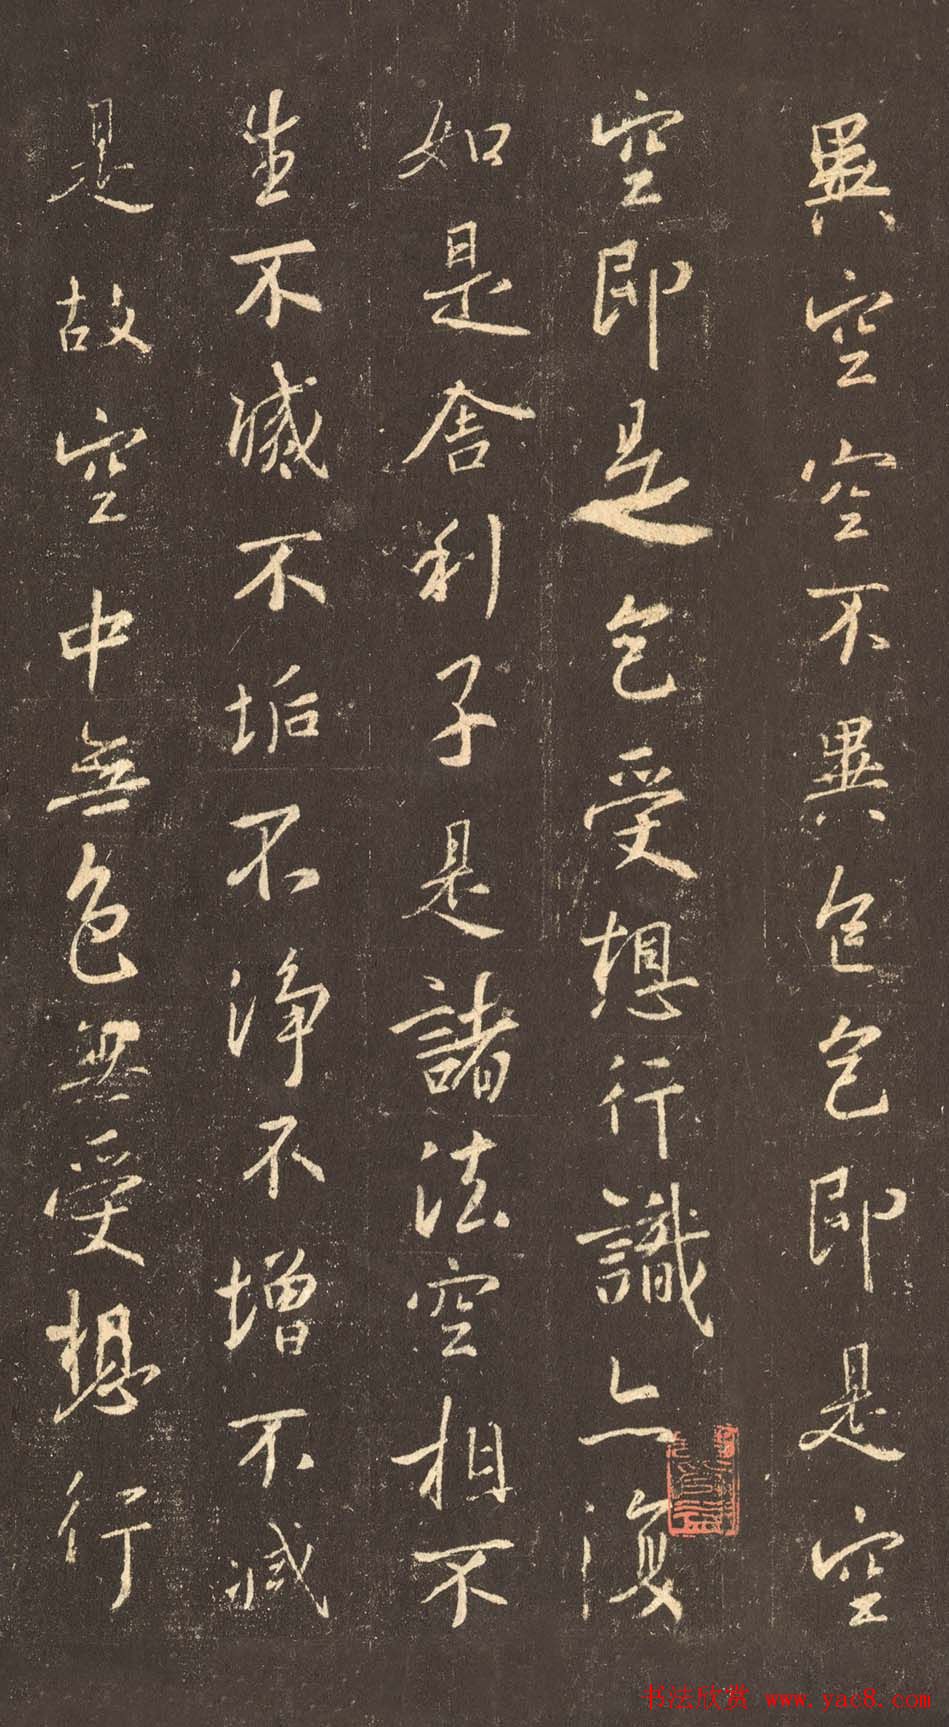 異空空不異色色即是空
空即是色受想行識亦復
如是舍利子是諸法空相不
生不滅不垢不淨不增不減
是故空中無色無受想行
书法欣赏 www.yac8.com